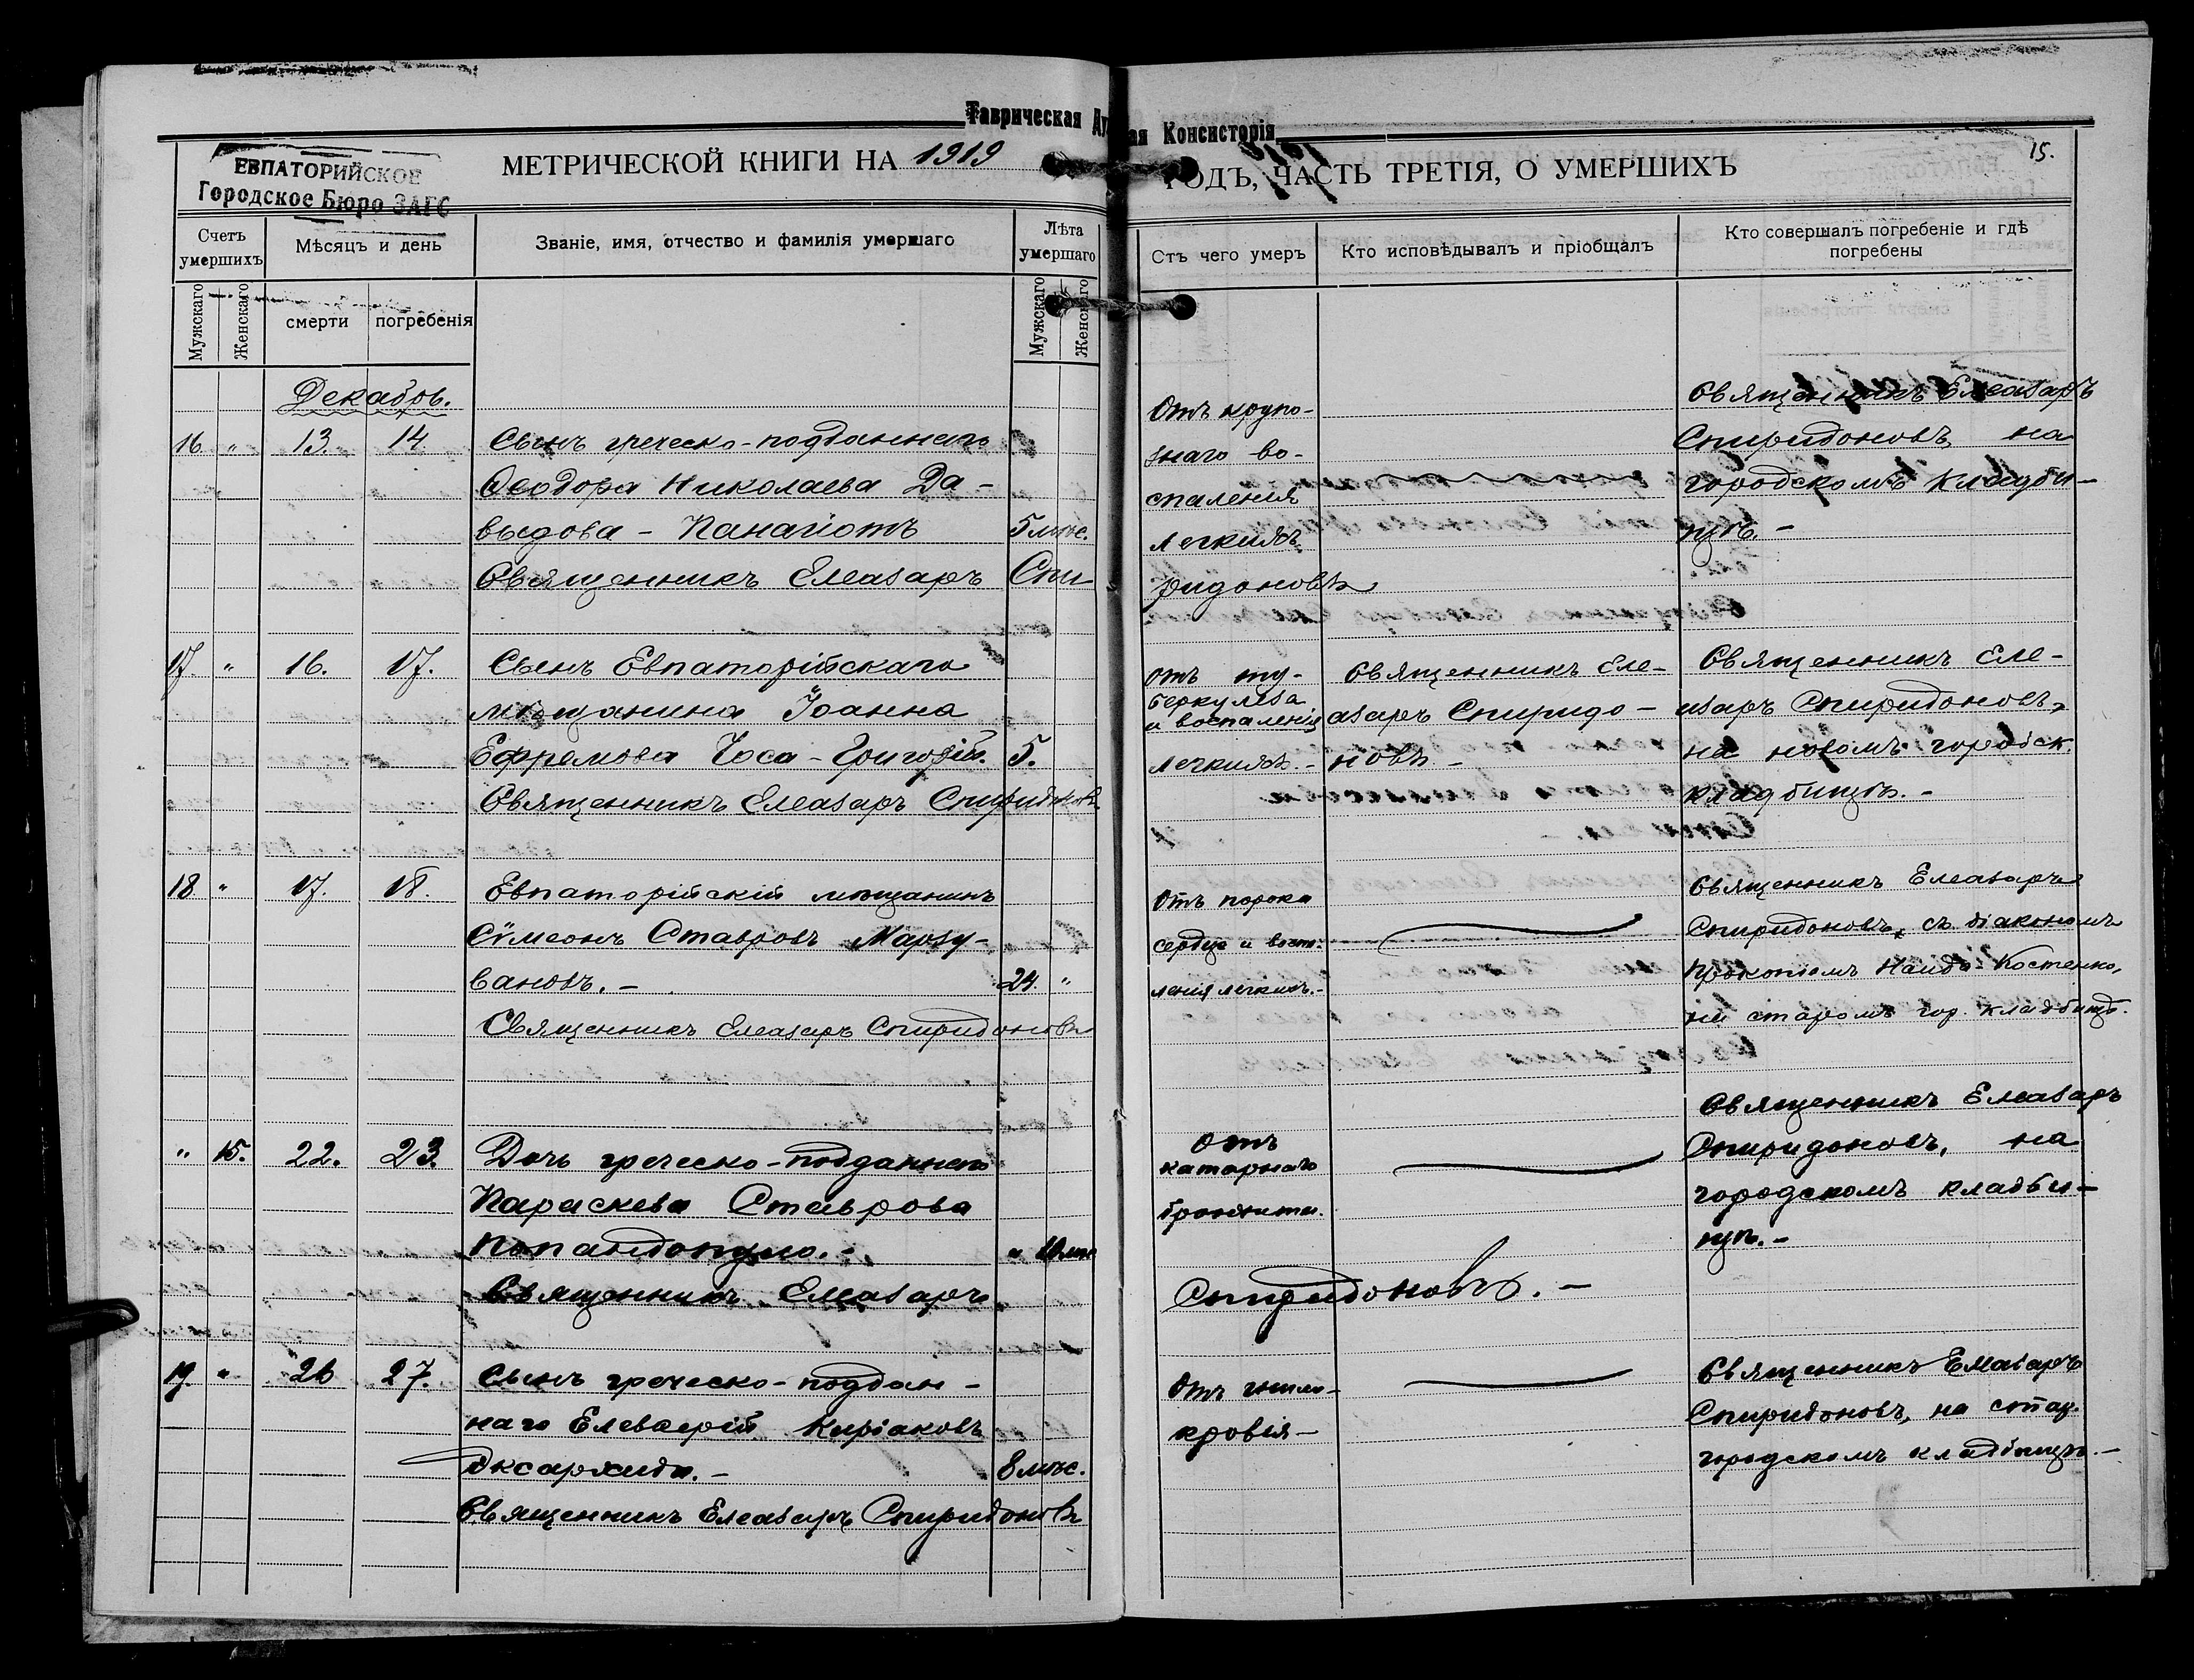 Таврическая Ду ая Консисторія
ЕВПАТОРИЙСКОЕ
Городское Бюро ЗАГС
МЕТРИЧЕСКОЙ КНИГИ НА 1919 ГОДЪ, ЧАСТЬ ТРЕТІЯ, О УМЕРШИХЪ
15.
Счетъ умершихъ
Мѣсяцъ и день
Званіе, имя, отчество и фамилія умершаго
Лѣта умершаго
Отъ чего умеръ
Кто исповѣдывалъ и пріобщалъ
Кто совершалъ погребеніе и гдѣ
погребены
Мужскаго
Женскаго
смерти
погребенія
Мужскаго
Женскаго
Декабрь.
16 " 13. 14
Сынъ греческо-подданнаго
Ѳеодора Николаева Да-
выдова - Панагіотъ 5 мѣс.
Священникъ Елеазаръ Спи
ридоновъ
Отъ крупо-
знаго во-
спаленія
легкихъ
Священникъ Елеазаръ
Спиридоновъ, на
городскомъ кладби-
щѣ. -
17. " 16. 17.
Сынъ Евпаторійскаго
мѣщанина Іоанна
Ефремова Чоса - Григорій. 5.
Священникъ Елеазаръ Спиридоновъ
отъ ту-
беркулеза
и воспаленія
легкихъ. -
Священникъ Еле-
азаръ Спиридо-
новъ -
Священникъ Еле-
азаръ Спиридоновъ,
на новомъ городск.
кладбищѣ. -
18. " 17. 18.
Евпаторійскій мѣщанинъ
Сѵмеонъ Ставровъ Марзу-
вановъ. - 24. "
Священникъ Елеазаръ Спиридоновъ
Отъ порока
сердца и восп-
ленія легкихъ. -
Священникъ Елеазаръ
Спиридоновъ, съ діакономъ
Прокопіемъ Наида-Костенко,
на старомъ гор. кладбищѣ.
" 15. 22. 23.
Дочь греческо-подданнаго
Параскева Ставрова
Попандопуло. - " 10 мѣс
Священникъ Елеазаръ
Спиридоновъ. -
Отъ
катарнаго
бронхита.
Священникъ Елеазаръ
Спиридоновъ, на
городскомъ кладби-
щѣ. -
19. " 26 27.
Сынъ греческо-поддан-
наго Елевѳерій Киріаковъ
8 мѣс.
Священникъ Елеазаръ Спиридоновъ
Отъ гнило-
кровія -
Священникъ Елеазаръ
Спиридоновъ, на стар.
городскомъ кладбищѣ. -